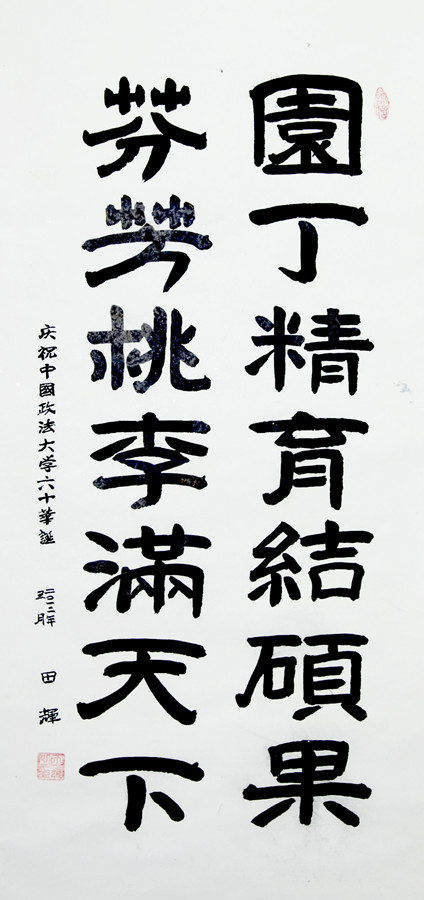 園丁精育結碩果
芬芳桃李滿天下
庆祝中國政法大学六十華誕
二〇一二年五月
田輝